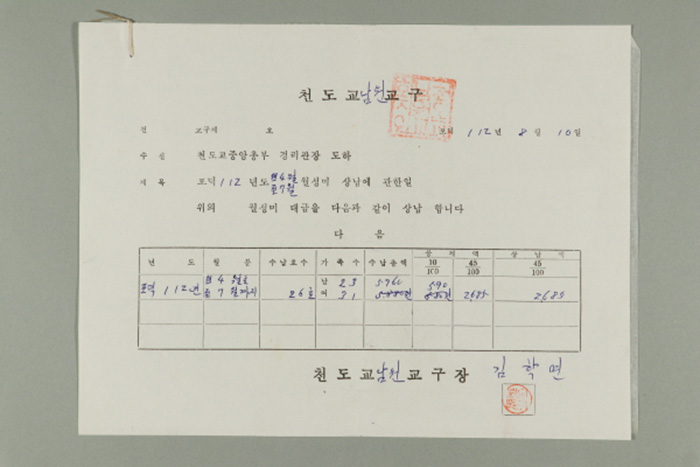 천도교남원교구
교구제 호 포덕 112년 8월 10일
수신 천도교중앙총부 경리관장 도하
제목 포덕 112년도 4월 7월 월성미 상납에 관한일
위의 월성미 대금을 다음과 같이 상납 합니다
다음
년도 월분 수납호수 가족수 수납총액 공제액 상납액
10/100 45/100 45/100
포덕 112년 4월 7월까지 26호 남 23 여 31 5960 590 2685 2685
천도교남원교구장 김학면